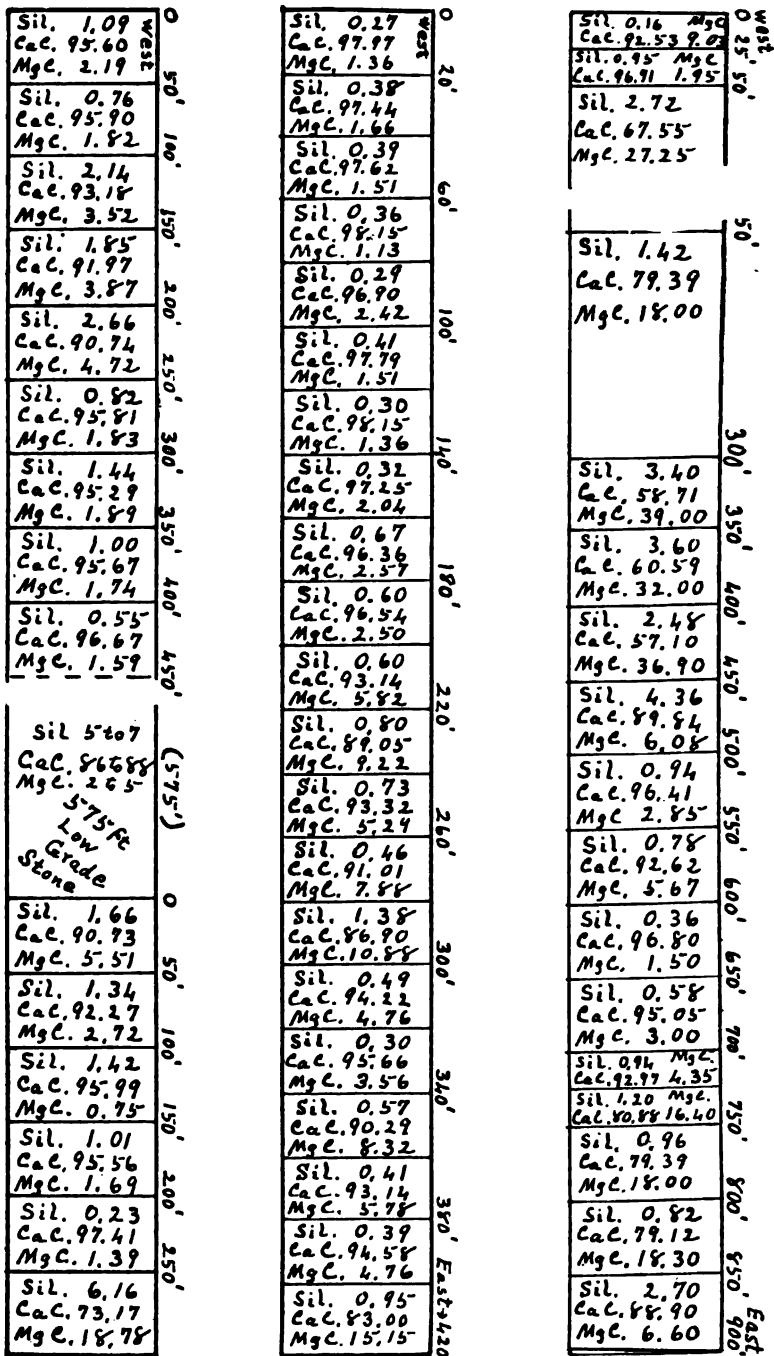 0
West
Sil. 1.09
CaC. 95.60
MgC. 2.19
50'
Sil. 0.76
CaC. 95.90
MgC. 1.82
100'
Sil. 2.14
CaC. 93.18
MgC. 3.52
150'
Sil. 1.85
CaC. 91.97
MgC. 3.87
200'
Sil. 2.66
CaC. 90.74
MgC. 4.72
250'
Sil. 0.82
CaC. 95.81
MgC. 1.83
300'
Sil. 1.44
CaC. 95.29
MgC. 1.89
350'
Sil. 1.00
CaC. 95.67
MgC. 1.74
400'
Sil. 0.55
CaC. 96.67
MgC. 1.59
450'
Sil 5 to 7
CaC. 86to88
MgC. 2to5
(575')
575 ft
Low
Grade
Stone
0
Sil. 1.66
CaC. 90.73
MgC. 5.51
50'
Sil. 1.34
CaC. 92.27
MgC. 2.72
100'
Sil. 1.42
CaC. 95.99
MgC. 0.75
150'
Sil. 1.01
CaC. 95.56
MgC. 1.69
200'
Sil. 0.23
CaC. 97.41
MgC. 1.39
250'
Sil. 6.16
CaC. 73.17
MgC. 18.78
0
West
Sil. 0.27
CaC. 97.97
MgC. 1.36
20'
Sil. 0.38
CaC. 97.44
MgC. 1.66
Sil. 0.39
CaC. 97.62
MgC. 1.51
60'
Sil. 0.36
CaC. 98.15
MgC. 1.13
Sil. 0.29
CaC. 96.90
MgC. 2.42
100'
Sil. 0.41
CaC. 97.79
MgC. 1.51
Sil. 0.30
CaC. 98.15
MgC. 1.36
140'
Sil. 0.32
CaC. 97.25
MgC. 2.04
Sil. 0.67
CaC. 96.36
MgC. 2.57
180'
Sil. 0.60
CaC. 96.54
MgC. 2.50
Sil. 0.60
CaC. 93.14
MgC. 5.82
220'
Sil. 0.80
CaC. 89.05
MgC. 9.22
Sil. 0.73
CaC. 93.32
MgC. 5.24
260'
Sil. 0.46
CaC. 91.01
MgC. 7.88
Sil. 1.38
CaC. 86.90
MgC. 10.88
300'
Sil. 0.49
CaC. 94.22
MgC. 4.76
Sil. 0.30
CaC. 95.66
MgC. 3.56
340'
Sil. 0.57
CaC. 90.29
MgC. 8.32
Sil. 0.41
CaC. 93.14
MgC. 5.78
380'
Sil. 0.39
CaC. 94.58
MgC. 4.76
Sil. 0.95
CaC. 83.00
MgC. 15.15
East+420
West
0
Sil. 0.16 MgC
CaC. 92.53 9.03
25'
Sil. 0.95 MgC
CaC. 96.91 1.95
50'
Sil. 2.72
CaC. 67.55
MgC. 27.25
50'
Sil. 1.42
CaC. 79.39
MgC. 18.00
300'
Sil. 3.40
CaC. 58.71
MgC. 39.00
350'
Sil. 3.60
CaC. 60.59
MgC. 32.00
400'
Sil. 2.48
CaC. 57.10
MgC. 36.90
450'
Sil. 4.36
CaC. 89.84
MgC. 6.08
500'
Sil. 0.94
CaC. 96.41
MgC 2.85
550'
Sil. 0.78
CaC. 92.62
MgC. 5.67
600'
Sil. 0.36
CaC. 96.80
MgC. 1.50
650'
Sil. 0.58
CaC. 95.05
MgC. 3.00
700'
Sil. 0.94 MgC.
CaC. 92.97 4.35
Sil. 1.20 MgC.
CaC. 80.88 16.40
750'
Sil. 0.96
CaC. 79.39
MgC. 18.00
800'
Sil. 0.82
CaC. 79.12
MgC. 18.30
850'
Sil. 2.70
CaC. 88.90
MgC. 6.60
East
900'